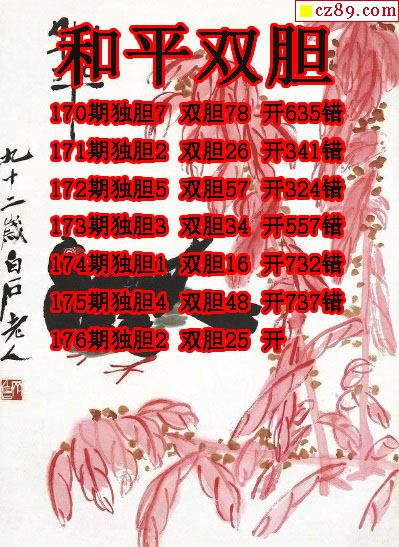 cz89.com
和平双胆
170期独胆7 双胆78 开635错
171期独胆2 双胆26 开341错
172期独胆5 双胆57 开324错
173期独胆3 双胆34 开557错
174期独胆1 双胆16 开732错
175期独胆4 双胆48 开737错
176期独胆2 双胆25 开
九十二岁白石老人